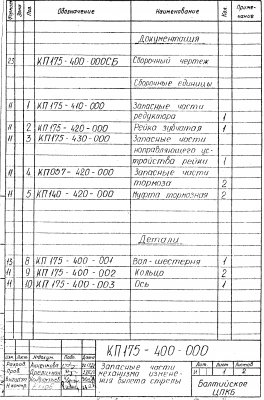 Формат Зона Поз. Обозначение Наименование Кол. Приме-
чание
Документация
23 КП175-400-000СБ Сборочный чертеж
Сборочные единицы
11 1 КП175-410-000 Запасные части
редуктора 1
11 2 КП175-420-000 Рейка зубчатая 1
11 3 КП175-430-000 Запасные части
направляющего ус-
тройства рейки 1
11 4 КП057-420-000 Запасные части
тормоза 2
11 5 КП140-420-000 Муфта тормозная 2
Детали
13 8 КП175-400-001 Вал-шестерня 1
11 9 КП175-400-002 Кольцо 2
11 10 КП175-400-003 Ось 1
КП175-400-000
Изм. Лист № докум. Подп. Дата
Разраб.
Пров.
Н.контр.
Запасные части
механизма измене-
ния вылета стрелы
Лит. Лист Листов
И 1 2
Балтийское
ЦПКБ